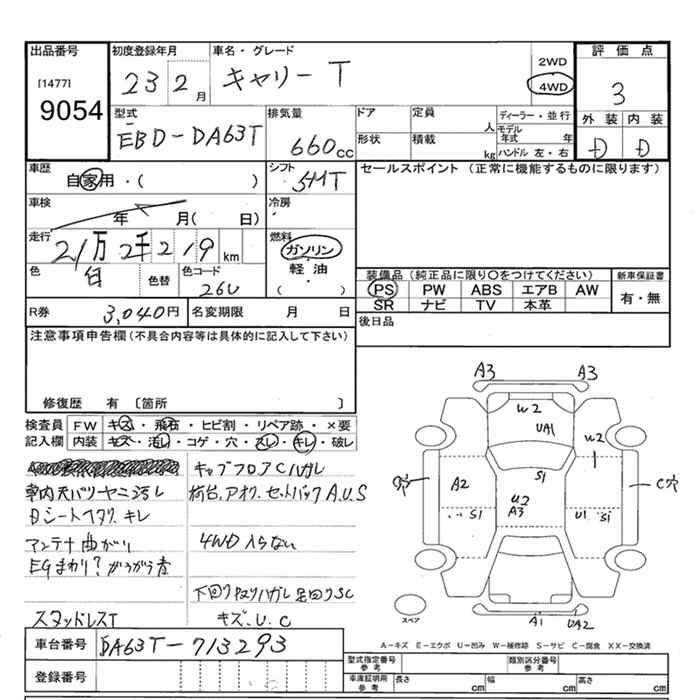 出品番号 初度登録年月 車名・グレード 評価点
[1477] 9054
23 2月 キャリー T 2WD 4WD 3
型式 排気量 ドア 定員 人 ディーラー・並行 外装 内装
EBD-DA63T 660cc 形状 積載 kg モデル年式 年 ハンドル 左・右 D D
車歴 シフト セールスポイント (正常に機能するものに限ります)
自家用・( ) 5MT
車検 年 月( 日) 冷房
走行 21万2千219km 燃料 ガソリン
色 白 色替 色コード 26U 軽油 ( )
装備品 (純正品に限り○をつけてください) 新車保証書
PS PW ABS エアB AW 有・無
SR ナビ TV 本革
R券 3,040円 名変期限 月 日 後日品
注意事項申告欄(不具合内容等は具体的に記入して下さい)
修復歴 有 〔箇所
検査員記入欄 FW キズ・飛石・ヒビ割・リペア跡・×要
内装 キズ・汚レ・コゲ・穴・スレ・キレ・破レ
キャブフロアCハガレ
車内天バリヤニ汚レ 荷台,アオリ,セットバックA,U,S
Dシートヘタリ キレ
アンテナ曲がり 4WD入らない
EGまわり?がらがら音
下回りサビハガレ 足回りSC
スタッドレスT キズ.U.C
A3 A3
W2 UA1 W2
S1
穴 A2 U2 A3 C穴
S1 U1 S1
スペア A1 UA2
A-キズ E-エクボ U-凹み W-補修跡 S-サビ C-腐食 XX-交換済
車台番号 DA63T-713293
登録番号
型式指定番号参考 類別区分番号参考
車庫証明用参考 長さ cm 幅 cm 高さ cm